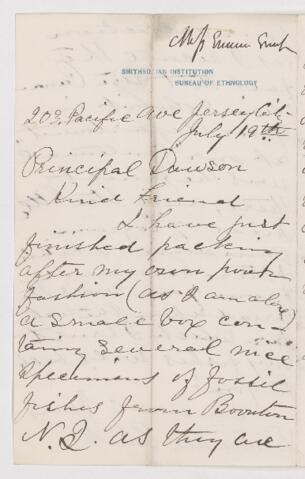 Miss Erminnie Smith
SMITHSONIAN INSTITUTION
BUREAU OF ETHNOLOGY
203 Pacific Ave Jersey City
July 19th
Principal Dawson
Kind Friend
I have just
finished packing
after my own poor
fashion (as I am alone)
a small box con-
taining several nice
specimens of fossil
fishes from Boonton
N.J. as they are